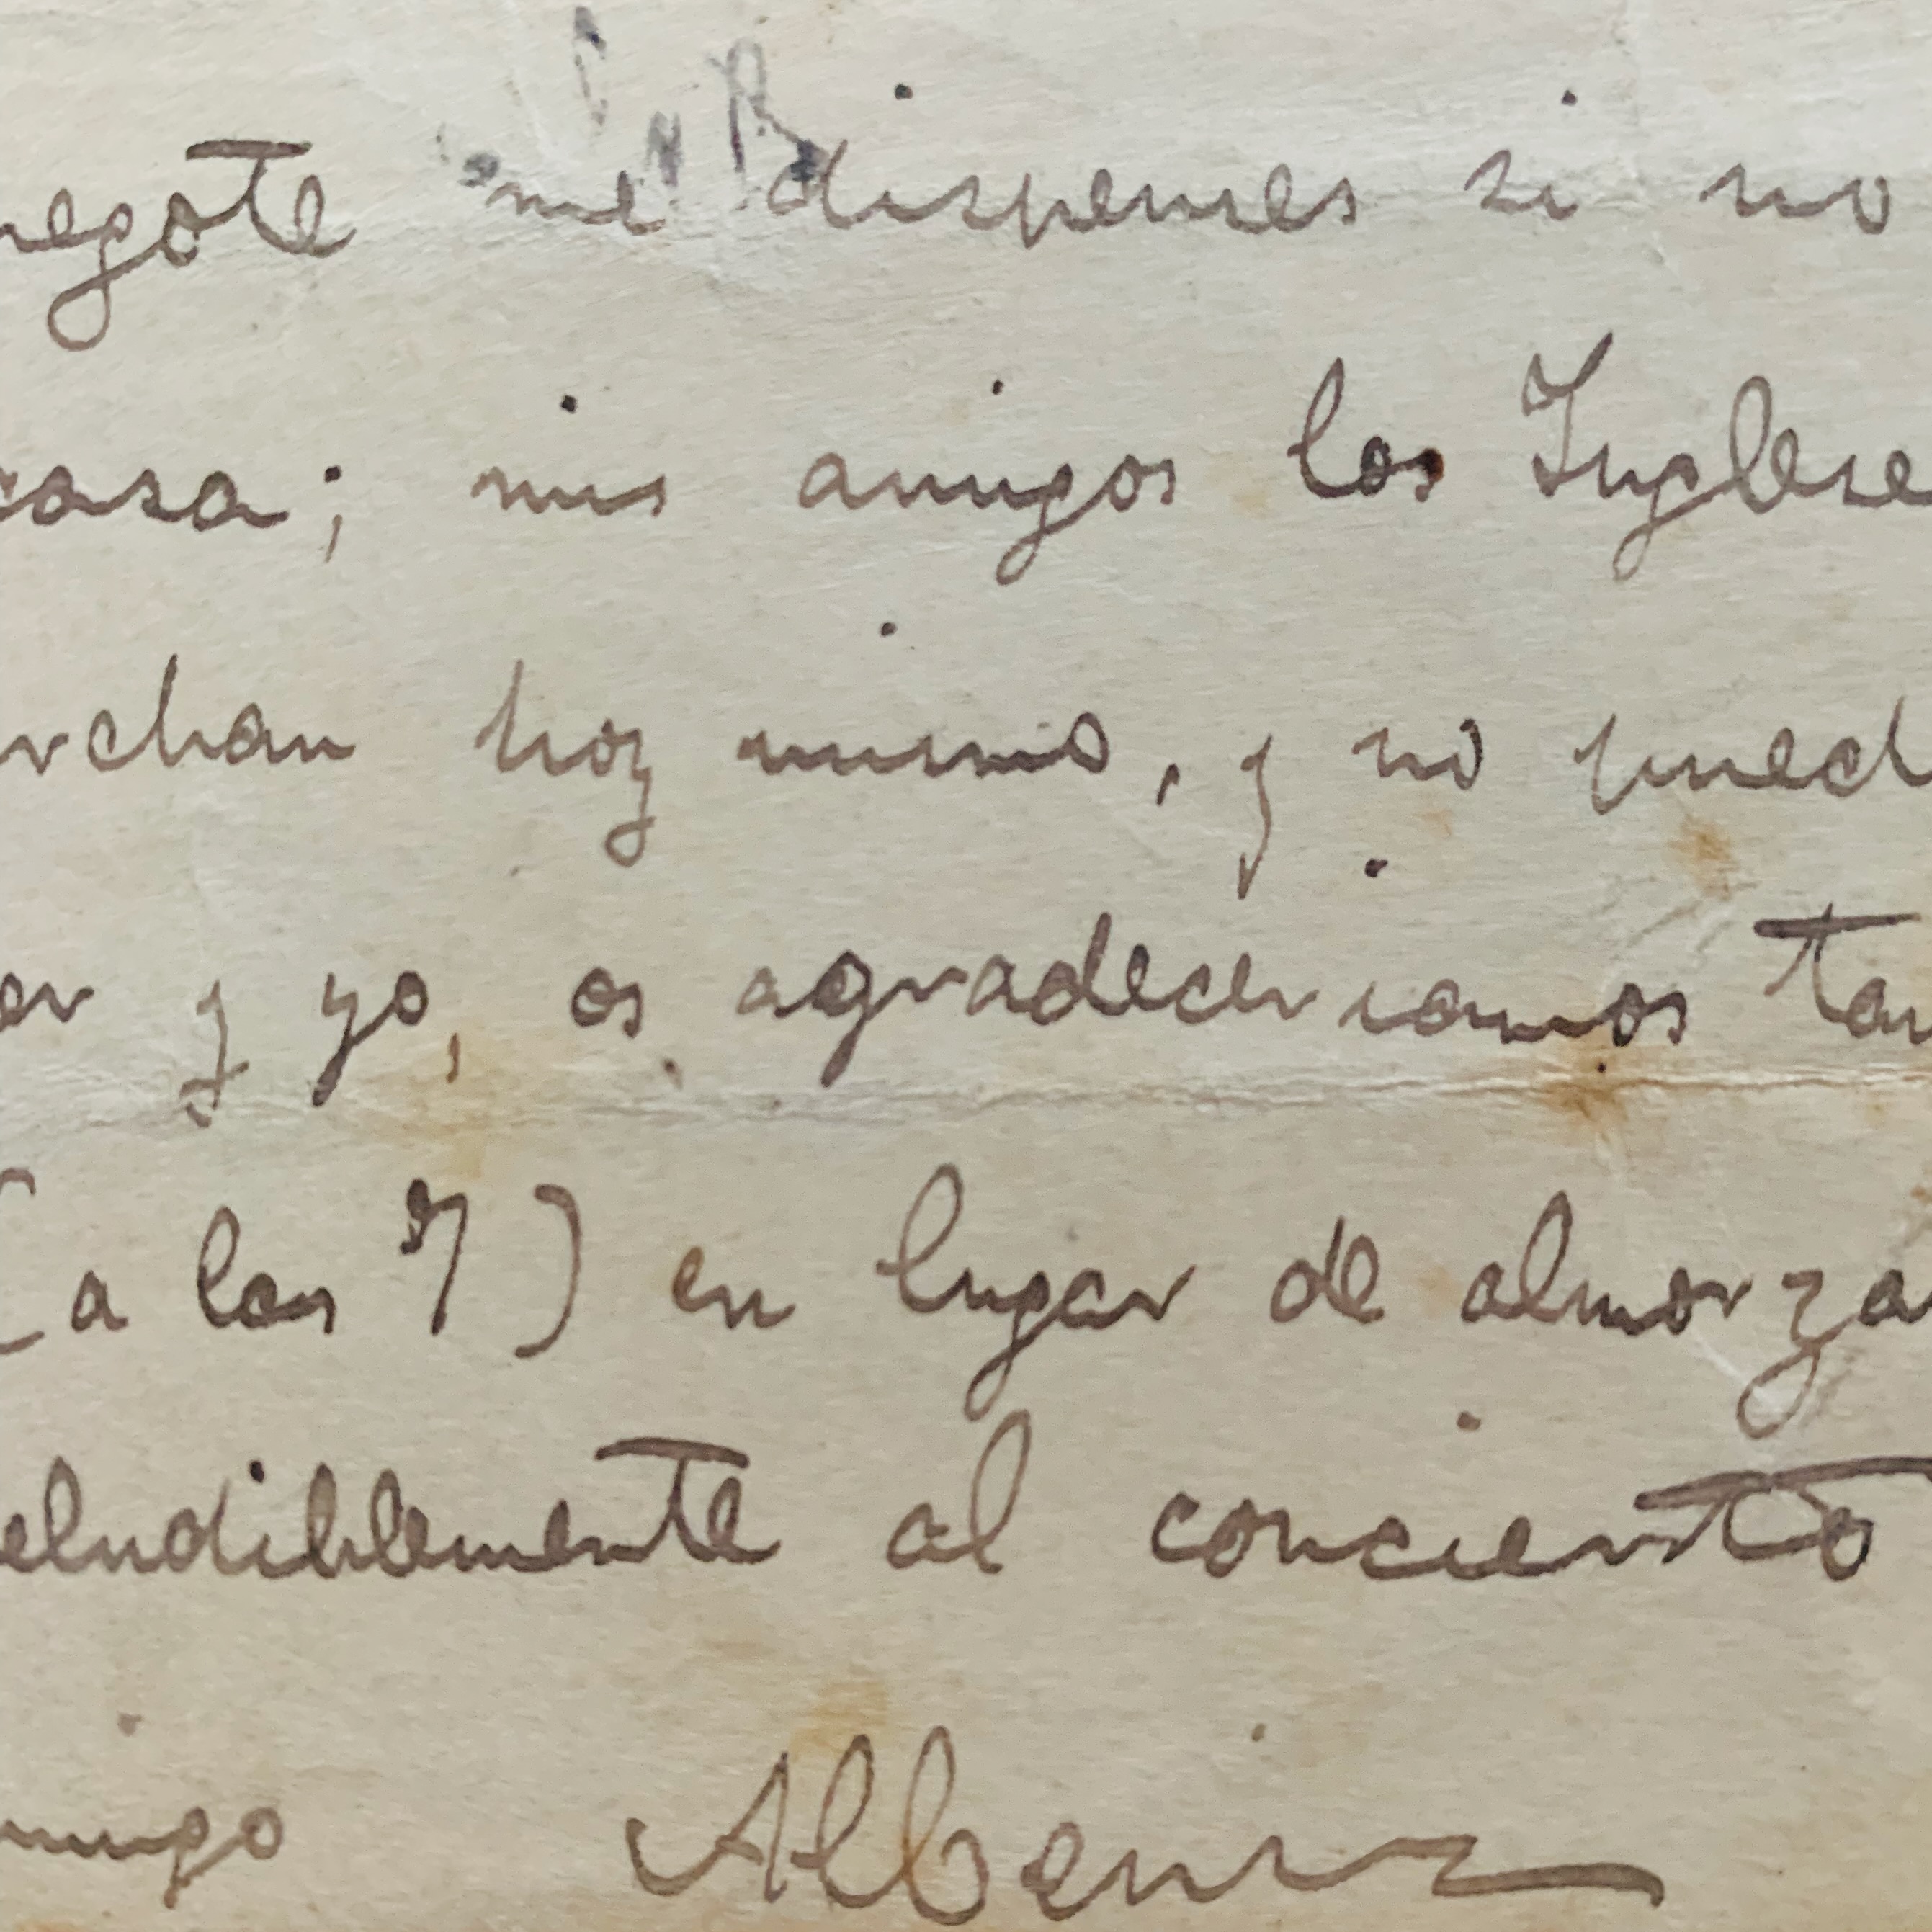 negote me dispenses si no
casa; mis amigos los Inglese
rchan hoy mismo, y no pued
er y yo, os agradeceriamos tan
(a las 7) en lugar de almorza
eludiblemente al concierto
migo Albeniz